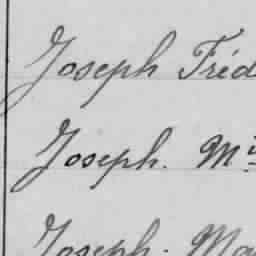 Joseph Fréd
Joseph. Mi
Joseph. Ma